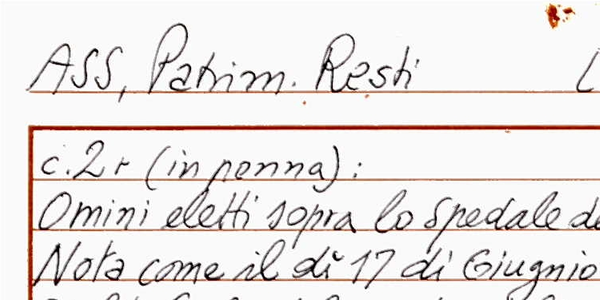 ASS, Patrim. Resti
c. 2r (in penna):
Omini eletti sopra lo spedale de
Nota come il dì 17 di Giugnio